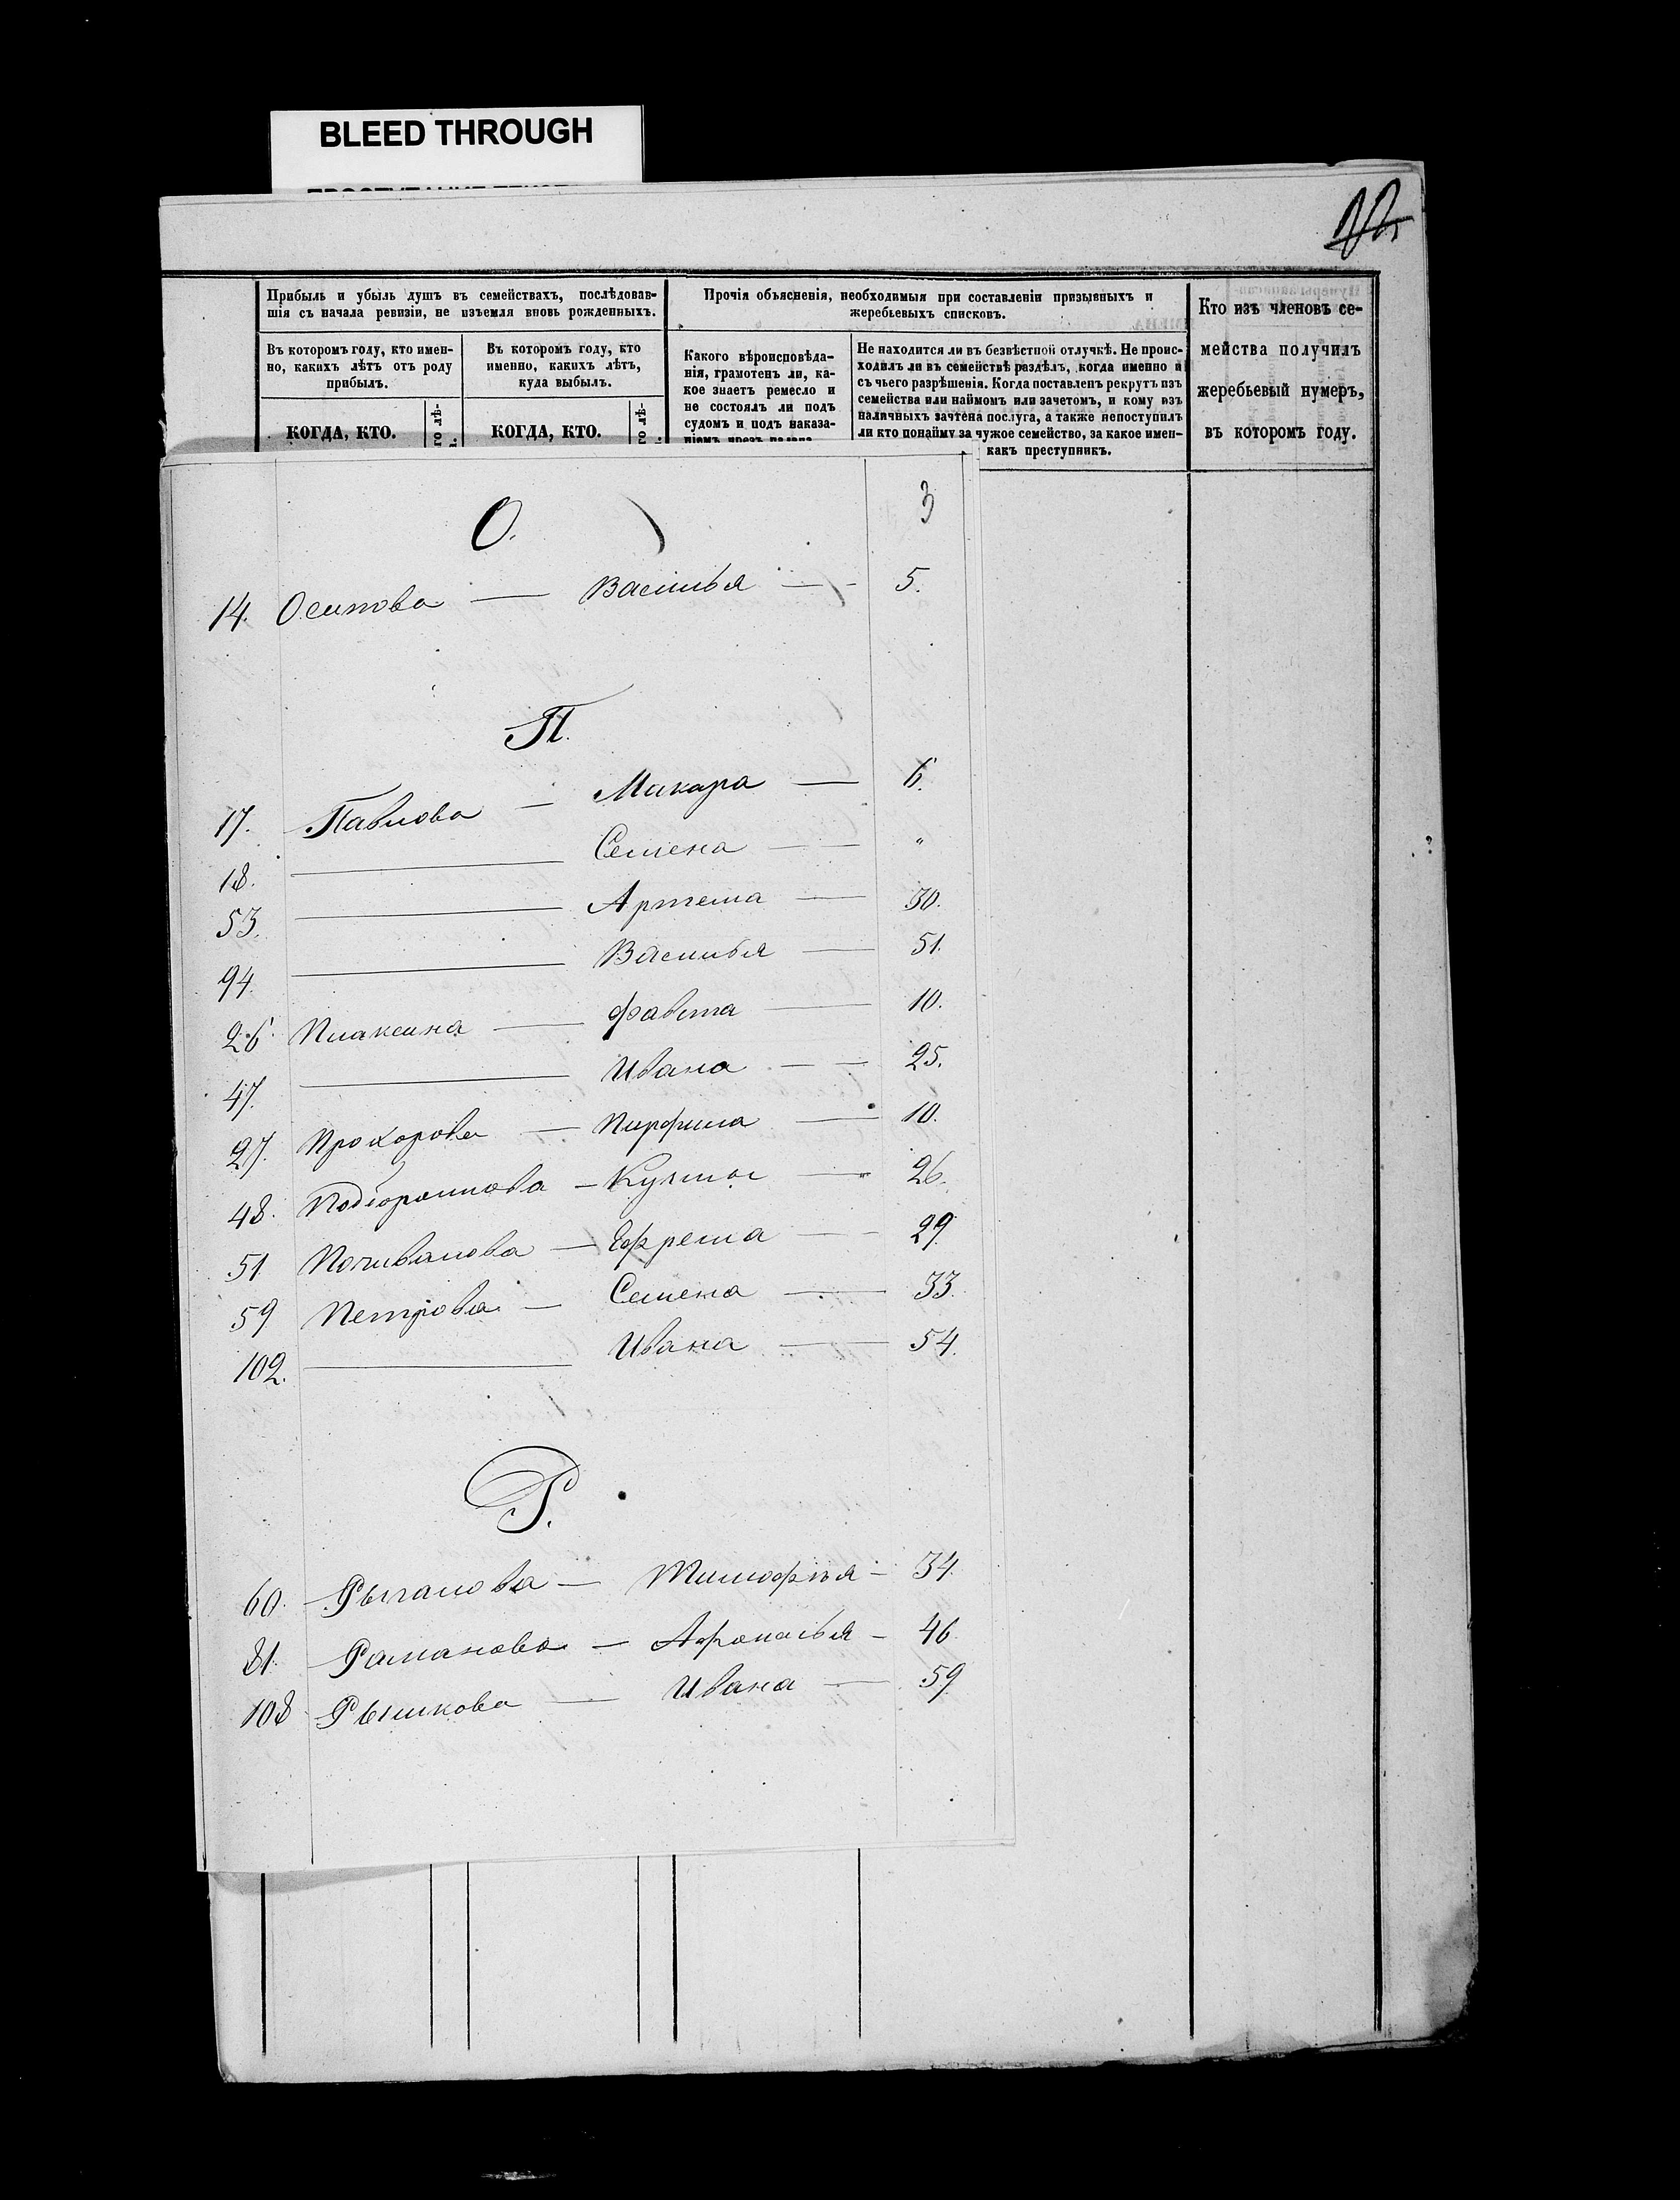 BLEED THROUGH
Прибыль и убыль душъ въ семействахъ, послѣдовав-
шія съ начала ревизіи, не изъемля вновь рожденныхъ.
Въ которомъ году, кто имен-
но, какихъ лѣтъ отъ роду
прибылъ.
КОГДА, КТО.
Въ которомъ году, кто
именно, какихъ лѣтъ,
куда выбылъ.
КОГДА, КТО.
Прочія объясненія, необходимыя при составленіи призывныхъ и
жеребьевыхъ списковъ.
Какого вѣроисповѣда-
нія, грамотенъ ли, ка-
кое знаетъ ремесло и
не состоялъ ли подъ
судомъ и подъ наказа-
Не находится ли въ безвѣстной отлучкѣ. Не проис-
ходилъ ли въ семействѣ раздѣлъ, когда именно и
съ чьего разрѣшенія. Когда поставленъ рекрутъ изъ
семейства или наймомъ или зачетомъ, и кому изъ
наличныхъ зачтена послуга, а также непоступилъ
ли кто понайму за чужое семейство, за какое имен-
какъ преступникъ.
Кто изъ членовъ се-
мейства получилъ
жеребьевый нумеръ,
въ которомъ году.
О. 3
14. Осипова — Василья — 5.
П.
17. Павлова — Макара — 6.
18. — Семена — "
53. — Артема — 30.
94. — Василья — 51.
26. Плаксина — 10.
47. — Ивана — 25.
27. Прохорова — Парфила — 10.
48. — Кузмы — 26.
51. Почивалова — Ефрема — 29.
59 Петрова — Семена — 33.
102. — Ивана — 54.
Р.
60. — Тимофея — 34.
81. Романова — Афонасья — 46.
108 Рышкова — Ивана — 59